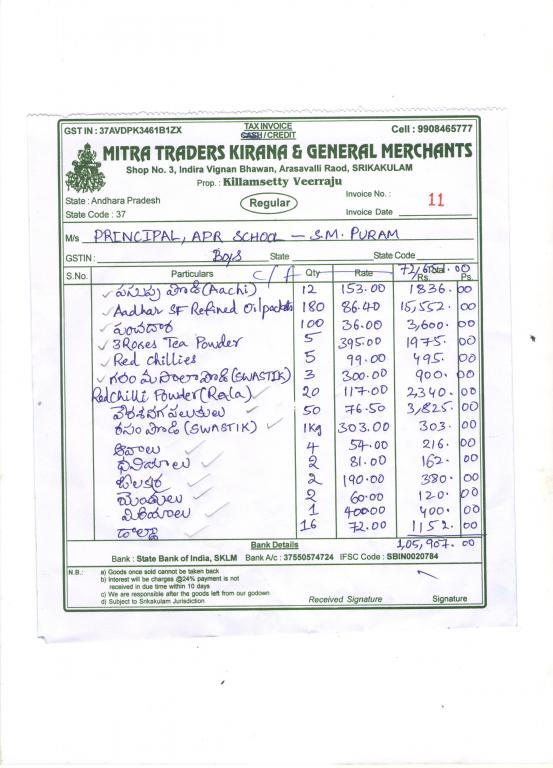 GST IN : 37AVDPK3461B1ZX TAX INVOICE Cell : 9908465777
CASH / CREDIT
MITRA TRADERS KIRANA & GENERAL MERCHANTS
Shop No. 3, Indira Vignan Bhawan, Arasavalli Raod, SRIKAKULAM
Prop. : Killamsetty Veerraju
State : Andhara Pradesh Regular Invoice No. : 11
State Code : 37 Invoice Date
M/s PRINCIPAL, APR SCHOOL - S.M. PURAM
GSTIN : Boys State State Code
S.No. Particulars C/f Qty Rate Total Rs. Ps.
పసుపు పొడి (Aachi) 12 153.00 1836. 00
Aadhar SF Refined Oil packets 180 86.40 15,552. 00
పంచదార 100 36.00 3,600. 00
3 Roses Tea Powder 5 395.00 1975. 00
Red chillies 5 99.00 495. 00
గరం మసాలా పొడి (SWASTIK) 3 300.00 900. 00
Red Chilli Powder 20 117.00 2,340. 00
వేరశనగ పలుకులు 50 76.50 3,825. 00
రసం పొడి (SWASTIK) 1Kg 303.00 303. 00
ఆవాలు 4 54.00 216. 00
ధనియాలు 2 81.00 162. 00
జీలకర్ర 2 190.00 380. 00
మెంతులు 2 60.00 120. 00
మిరియాలు 1 400.00 400. 00
డాల్డా 16 72.00 1152. 00
Bank Details 1,05,907. 00
Bank : State Bank of India, SKLM Bank A/c : 37550574724 IFSC Code : SBIN0020784
N.B. : a) Goods once sold cannot be taken back
b) Interest will be charges @24% payment is not
received in due time within 10 days
c) We are responsible after the goods left from our godown
d) Subject to Srikakulam Jurisdiction Received Signature Signature